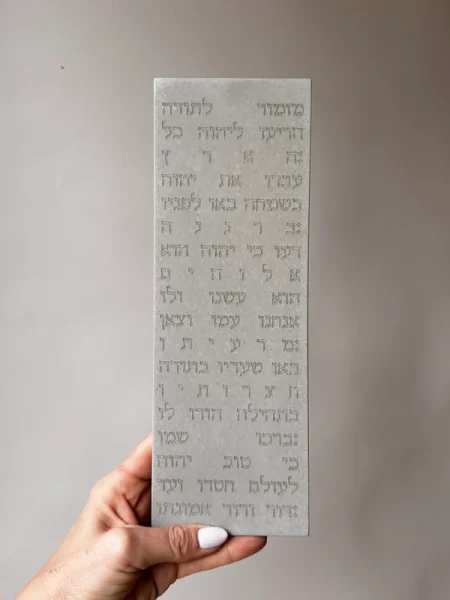 מזמור לתודה
הריעו ליהוה כל
:ה א ר ץ
עבדו את יהוה
בשמחה באו לפניו
:ב ר נ נ ה
דעו כי יהוה הוא
א ל ו ה י ם
הוא עשנו ולו
אנחנו עמו וצאן
:מ ר ע י ת ו
באו שעריו בתודה
ח צ ר ו ת י ו
בתהילה הודו לו
:ברכו שמו
כי טוב יהוה
לעולם חסדו ועד
:דור ודור אמונתו